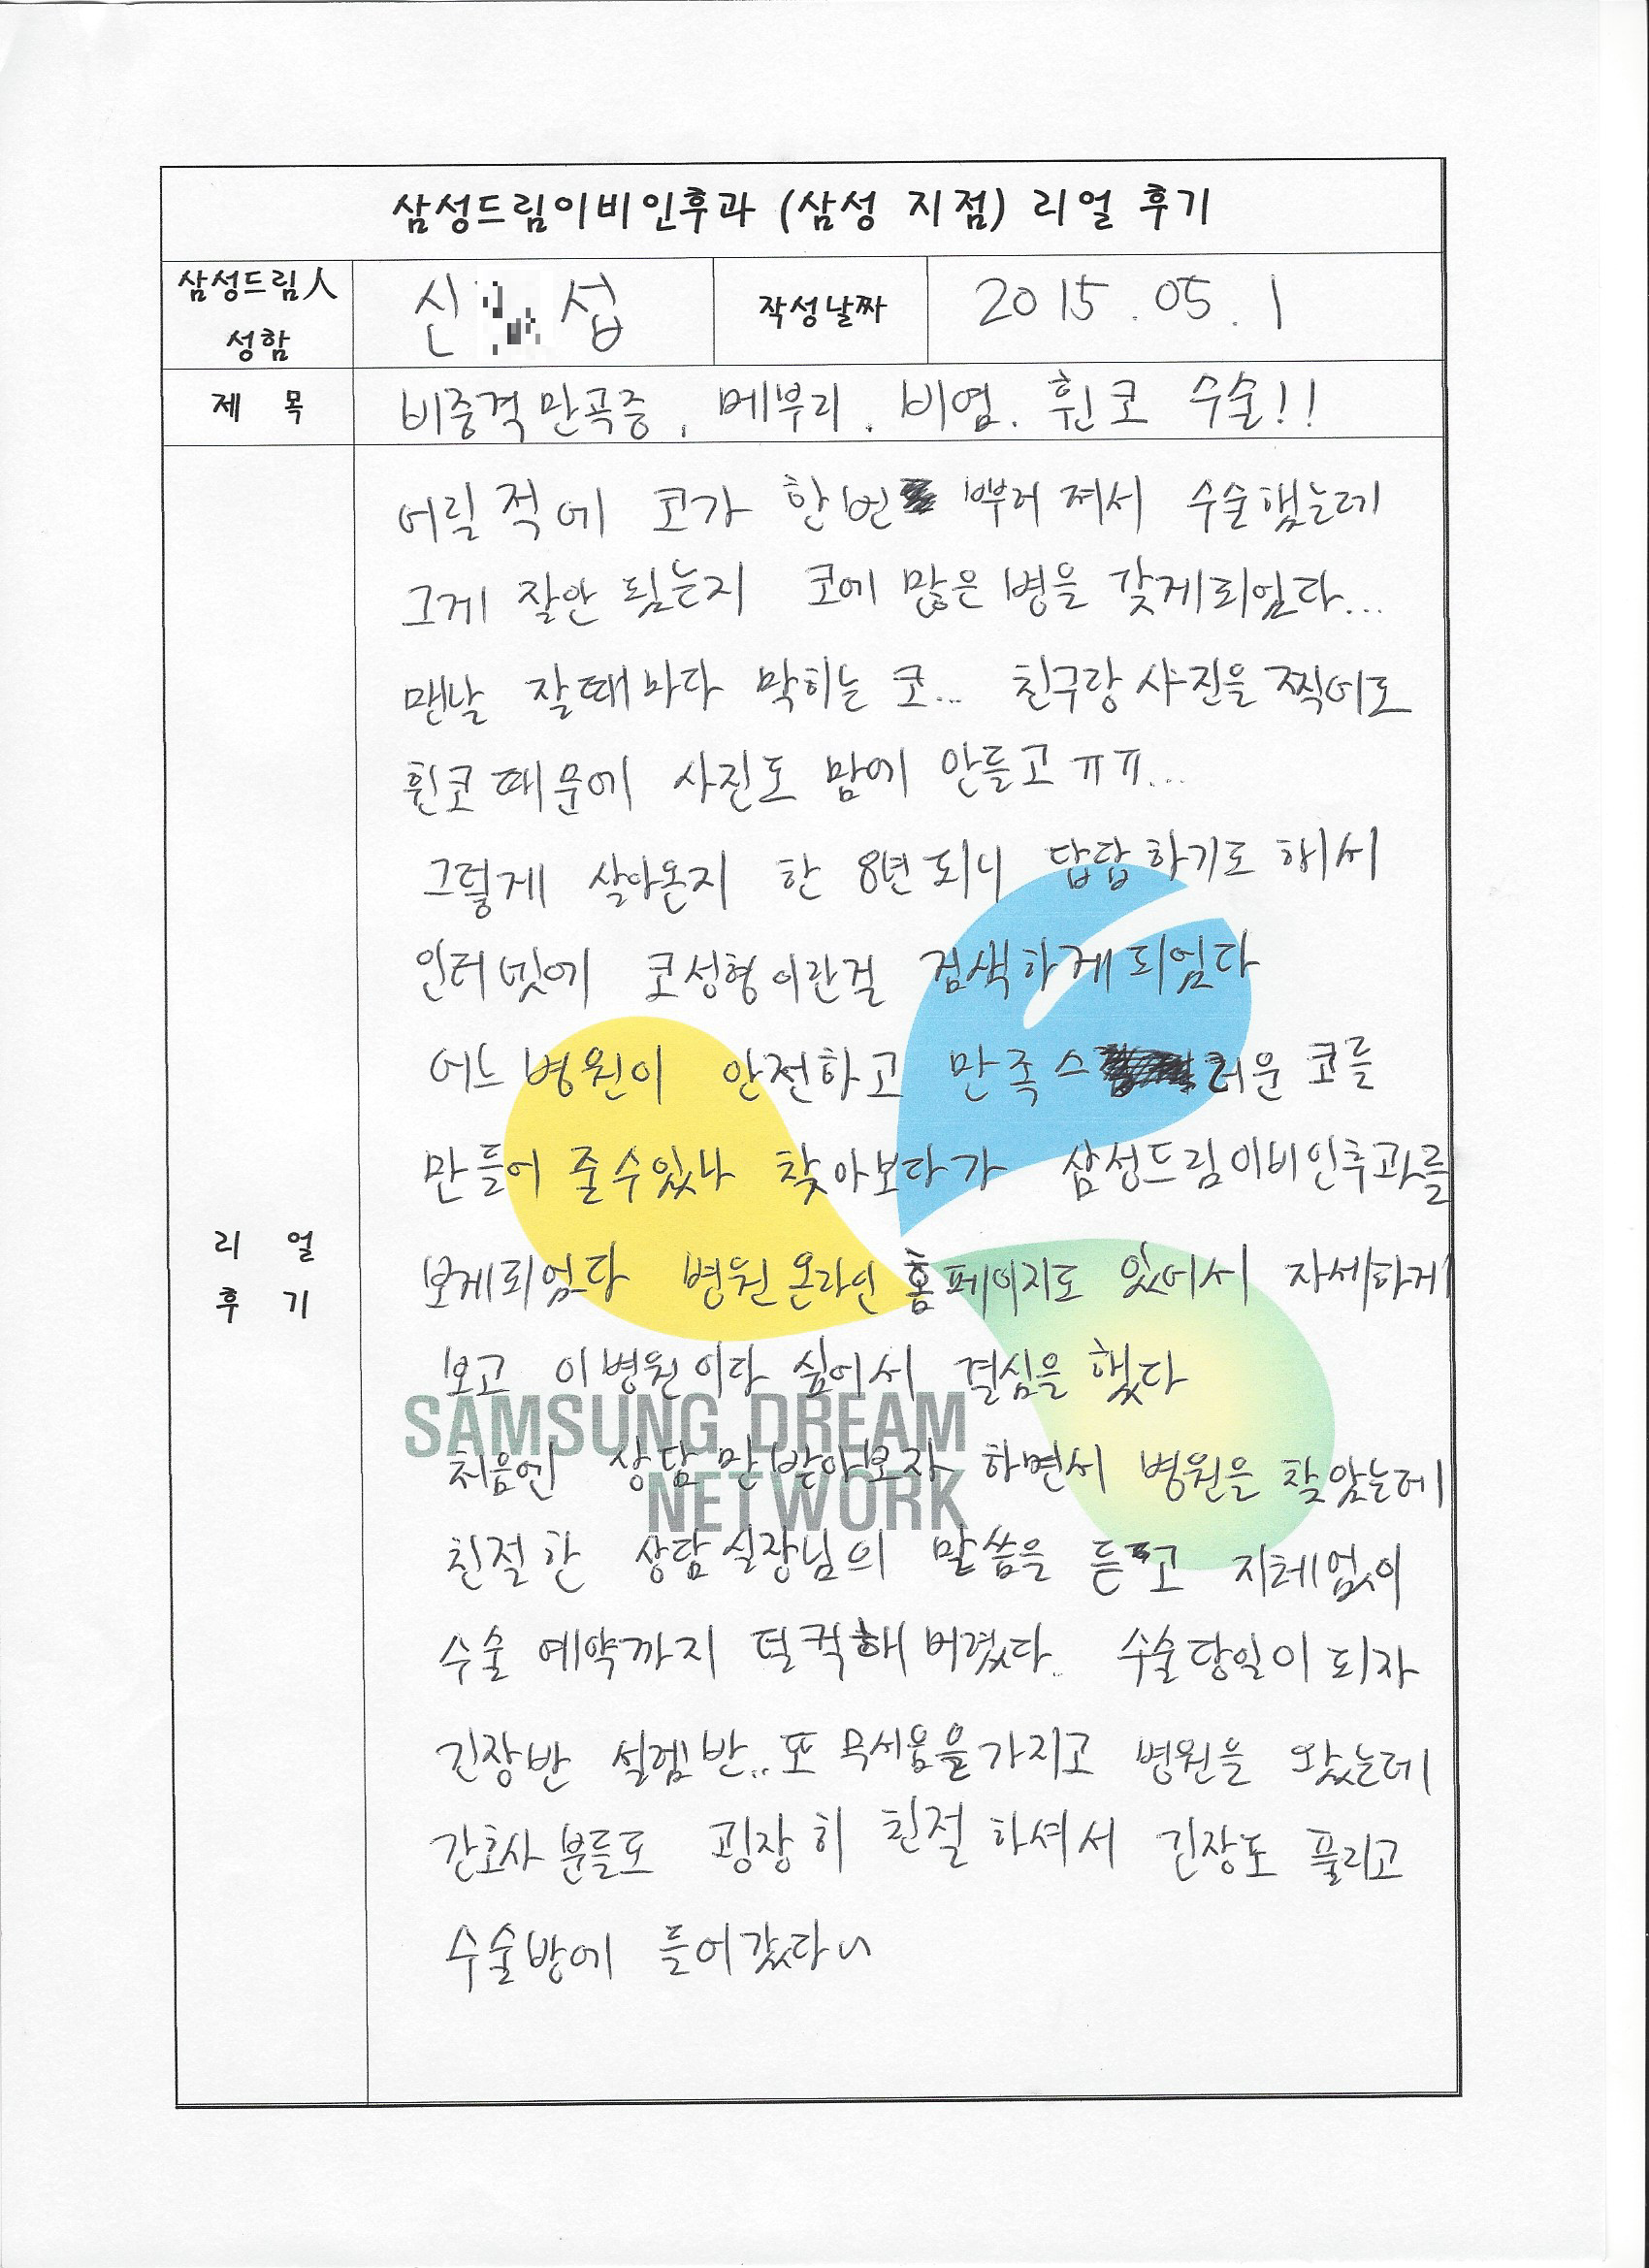 삼성드림이비인후과 (삼성 지점) 리얼 후기
삼성드림人 성함
신 섭
작성날짜
2015.05.1
제 목
비중격만곡증, 메부리. 비염. 휜코 수술!!
리 얼 후 기
어릴적에 코가 한번 뿌러져서 수술했는데
그게 잘안 됬는지 코에 많은 병을 갖게되었다...
맨날 잘때마다 막히는 코... 친구랑 사진을 찍어도
휜코때문에 사진도 맘에 안들고 ㅠㅠ...
그렇게 살아온지 한 8년되니 답답하기도 해서
인터넷에 코성형이란걸 검색하게되었다
어느병원이 안전하고 만족스러운 코를
만들어 줄수있나 찾아보다가 삼성드림이비인후과를
보게되었다 병원온라인 홈페이지도 있어서 자세하게
보고 이병원이다 싶어서 결심을 했다
SAMSUNG DREAM
처음엔 상담만받아보자 하면서 병원을 찾았는데
NETWORK
친절한 상담실장님의 말씀을 듣고 지체없이
수술 예약까지 덜컥해버렸다.. 수술당일이되자
긴장반 설렘반.. 또 무서움을가지고 병원을 왔는데
간호사분들도 굉장히 친절하셔서 긴장도 풀리고
수술방에 들어갔다~